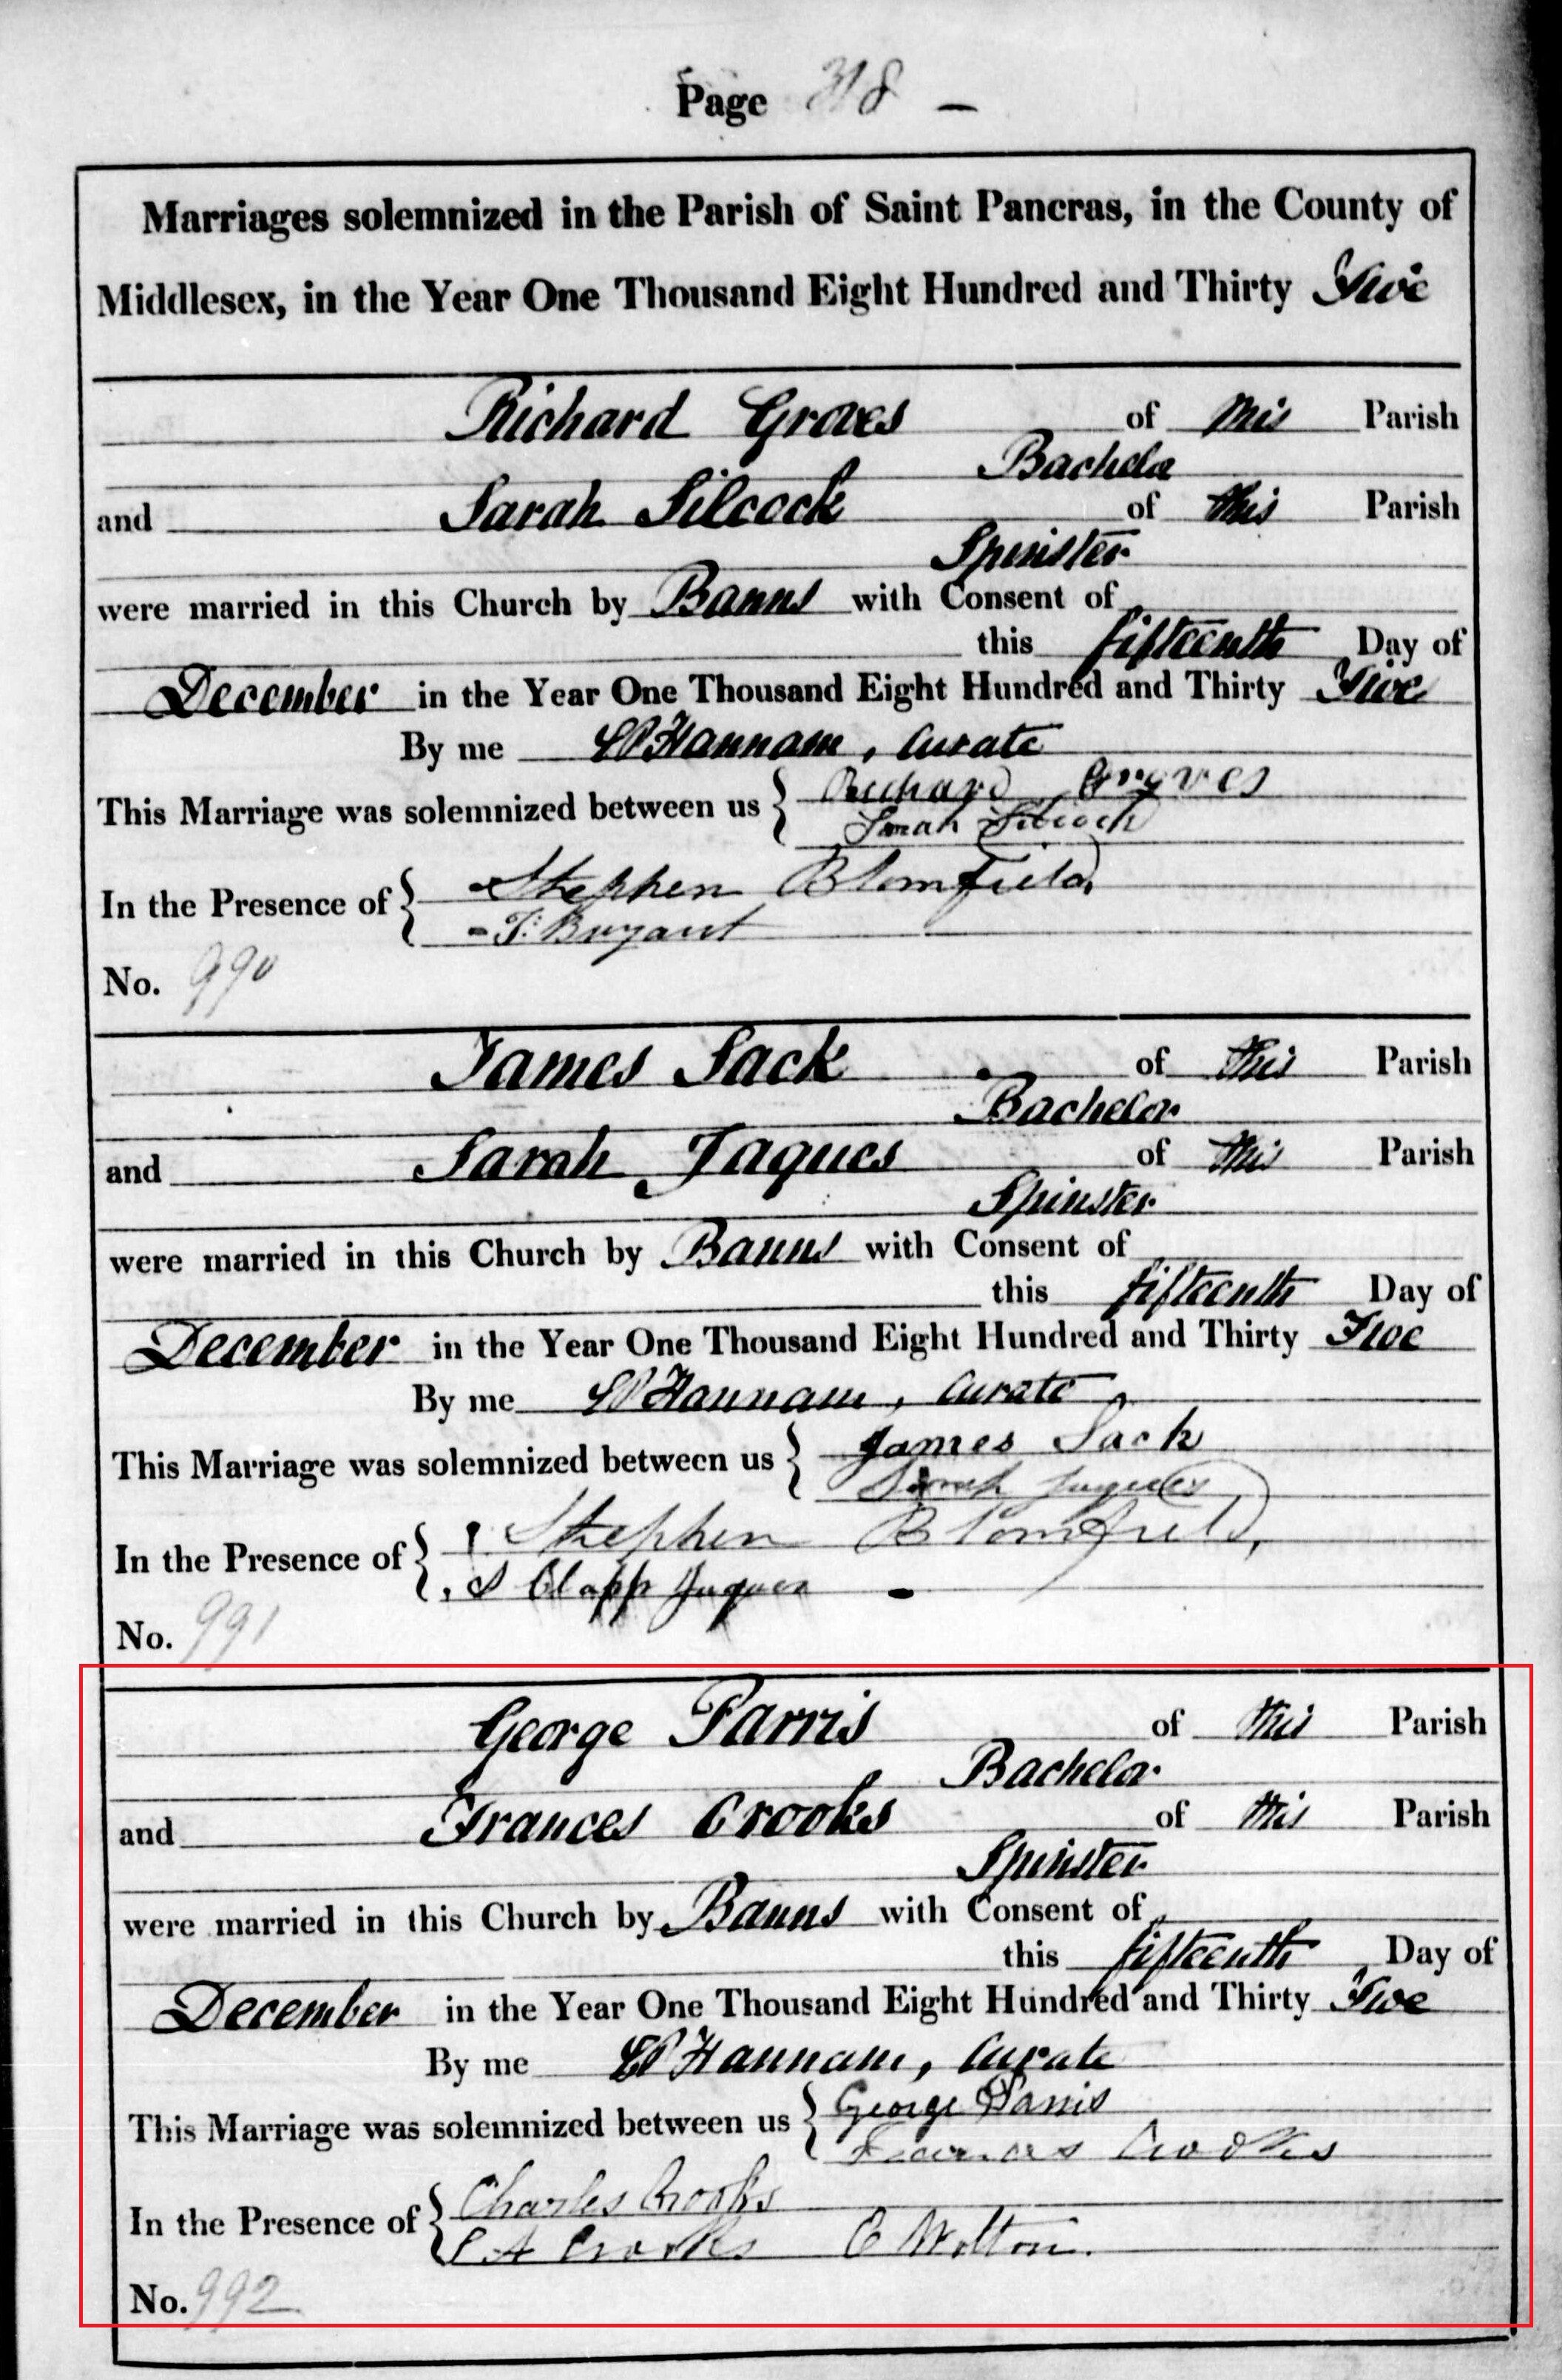 Page 318 —
Marriages solemnized in the Parish of Saint Pancras, in the County of
Middlesex, in the Year One Thousand Eight Hundred and Thirty Five
Richard Groves of this Parish
Bachelor
and Sarah Silcock of this Parish
Spinster
were married in this Church by Banns with Consent of
this fifteenth Day of
December in the Year One Thousand Eight Hundred and Thirty Five
By me Hannam, Curate
This Marriage was solemnized between us { Richard Groves
Sarah Silcock
In the Presence of { Stephen Blomfield
T. Bryant
No. 990
James Sack of this Parish
Bachelor
and Sarah Jaques of this Parish
Spinster
were married in this Church by Banns with Consent of
this fifteenth Day of
December in the Year One Thousand Eight Hundred and Thirty Five
By me Hannam, Curate
This Marriage was solemnized between us { James Sack
Sarah Jaques
In the Presence of { Stephen Blomfield
S Clapp Jaques
No. 991
George Parris of this Parish
Bachelor
and Frances Crooks of this Parish
Spinster
were married in this Church by Banns with Consent of
this fifteenth Day of
December in the Year One Thousand Eight Hundred and Thirty Five
By me Hannam, Curate
This Marriage was solemnized between us { George Parris
Frances Crooks
In the Presence of { Charles Crooks
A Crooks E Wolton.
No. 992